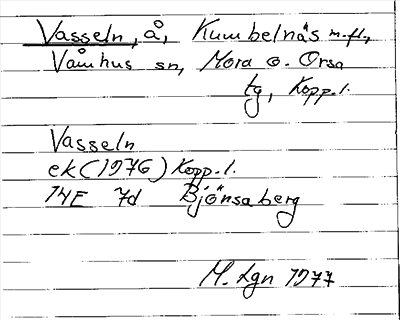 Vasseln, å, Kumbelnäs m.fl.,
Våmhus sn, Mora o. Orsa
tg, Kopp.l.
Vasseln
ek (1976) Kopp.l.
14E 7d Björsaberg
M. Lgn 1977